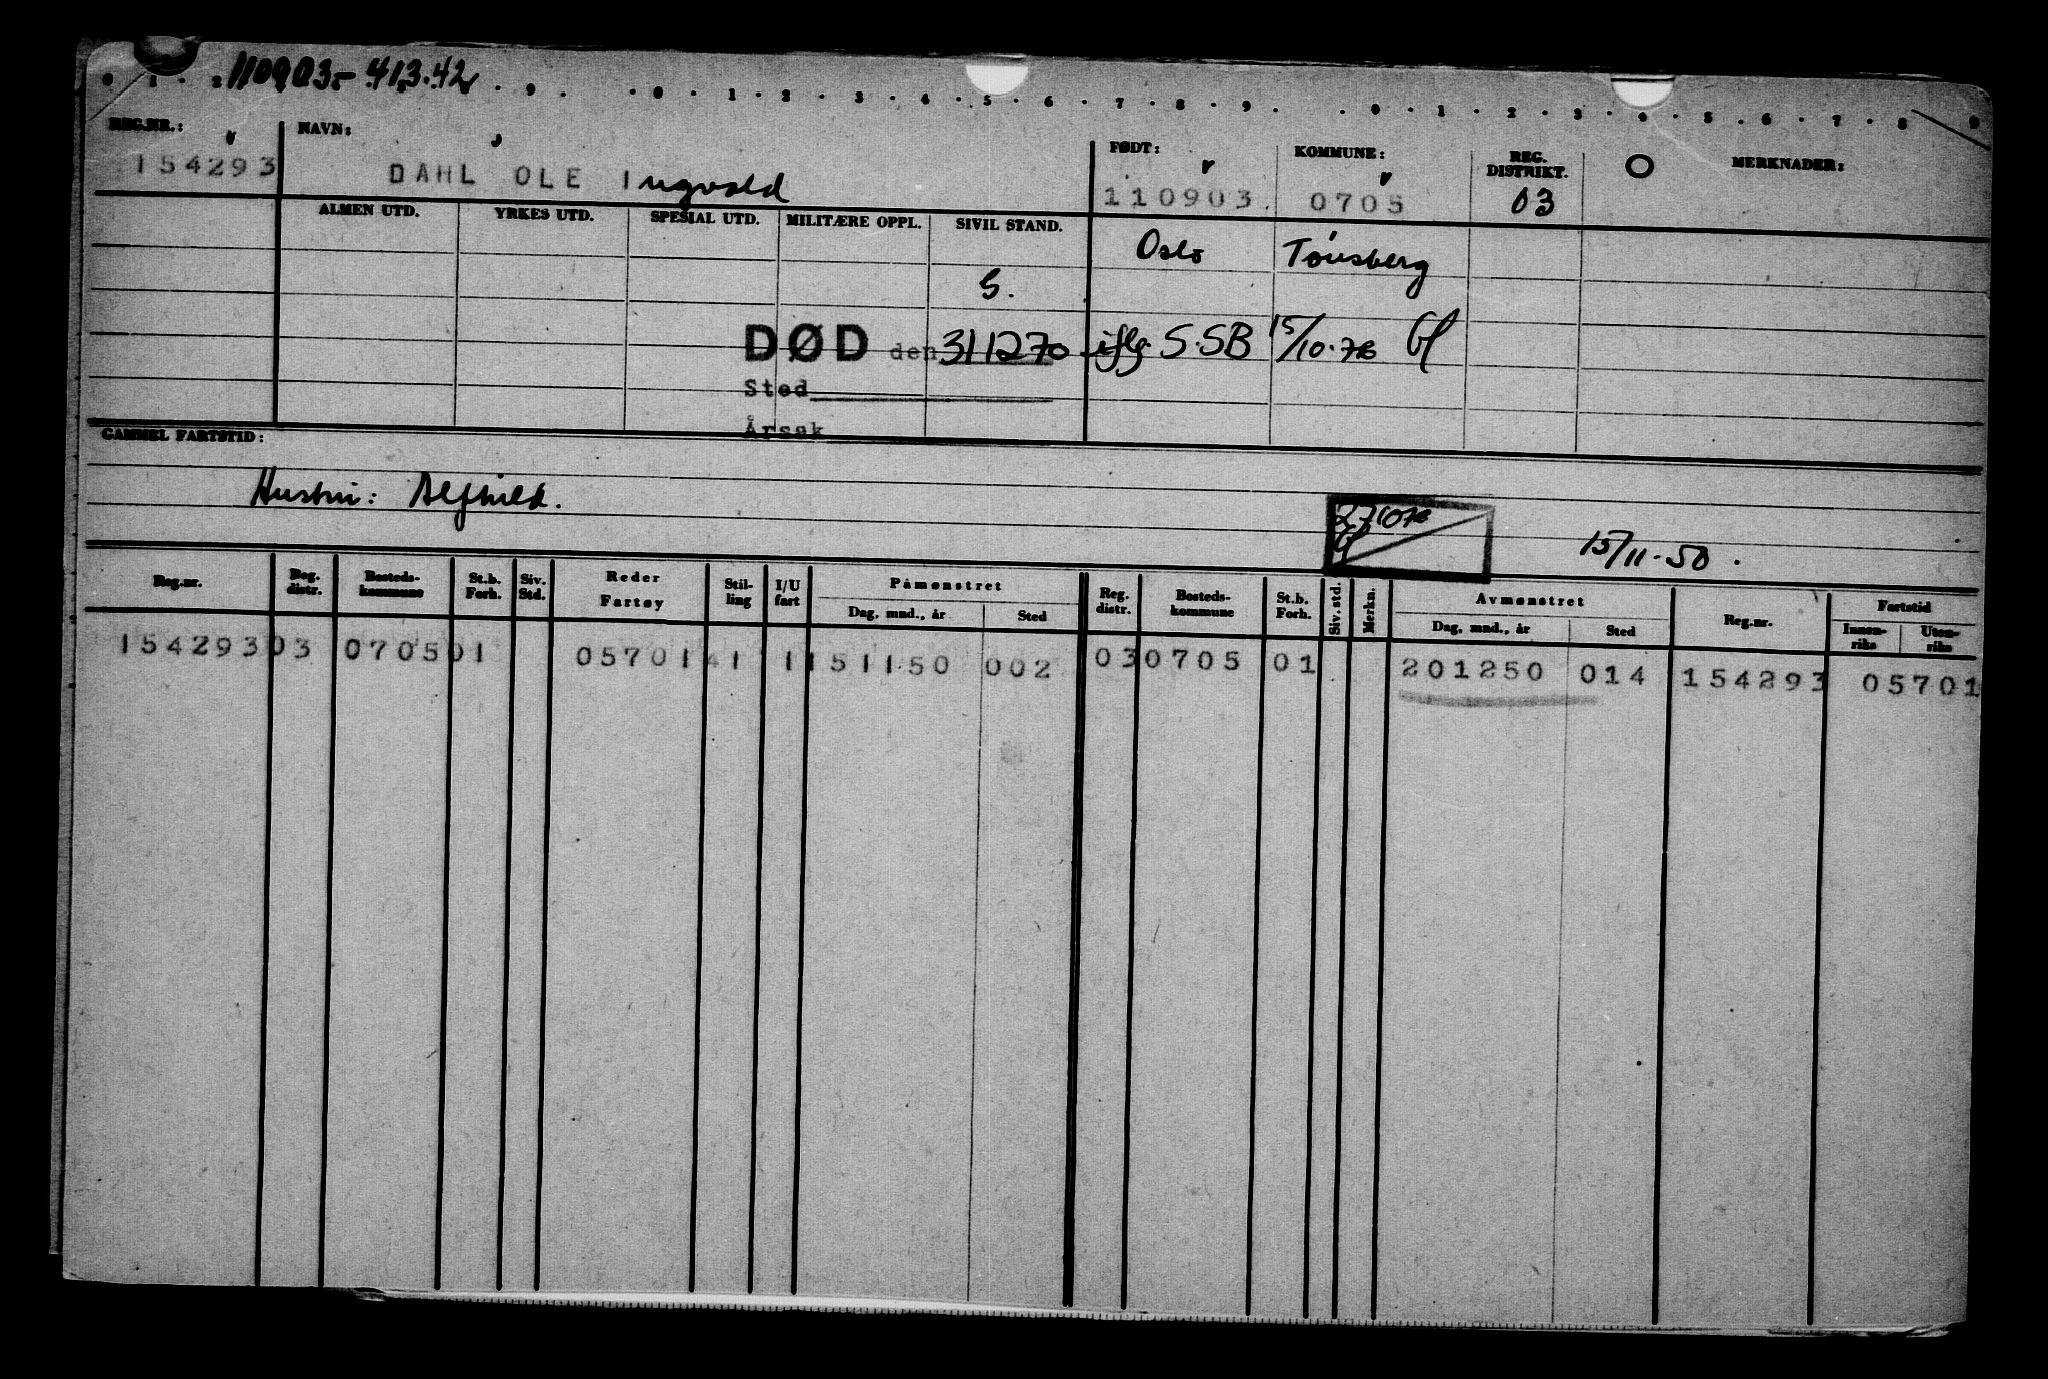 110903.- 413.42
0 1 2 9 0 1 2 3 4 5 6 7 8 9 0 1 2 3 4 5 6 7 8 9
REG.NR.: NAVN: FØDT: KOMMUNE: REG. DISTRIKT. O MERKNADER:
154293 DAHL OLE Ingvald 110903. 0705 03
ALMEN UTD. YRKES UTD. SPESIAL UTD. MILITÆRE OPPL. SIVIL STAND.
Oslo Tønsberg
S.
DØD den 311270 iflg. S.SB 15/10.76
Sted
Årsak
GAMMEL FARTSTID:
Hustru: Alfhild.
15/11.50.
Reg.nr. Reg. distr. Bosteds-kommune St.b. Forh. Siv. Std. Reder Fartøy Stil-ling I/U fart Påmønstret Dag, mnd., år Sted Reg. distr. Bosteds-kommune St.b. Forh. Siv. std. Merkn. Avmønstret Dag, mnd., år Sted Reg.nr. Fartstid Innen-riks Uten-riks
154293 03 0705 01 05701 41 1 151150 002 03 0705 01 201250 014 154293 05701